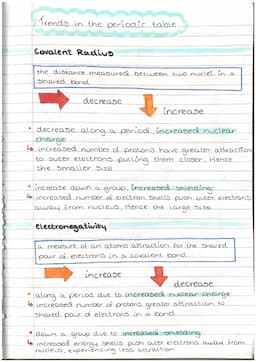 Trends in the periodic table
Covalent Radius
the distance measured between two nuclei in a
shared bond
decrease
increase
• decrease along a period, increased nuclear
charge
↳ increased number of protons have greater attraction
to outer electrons pulling them closer. Hence
the smaller size
• increase down a group, increased shielding
↳ increased number of electron shells push outer electrons
away from nucleus, Hence the large size
Electronegativity
a measure of an atoms attraction for the shared
pair of electrons in a covalent bond
increase
decrease
• along a period due to increased nuclear charge
↳ increased number of protons greater attraction to
shared pair of electrons in a bond
• down a group due to increased shielding
↳ increased energy shells push outer electrons away from
nucleus, experiencing less attraction